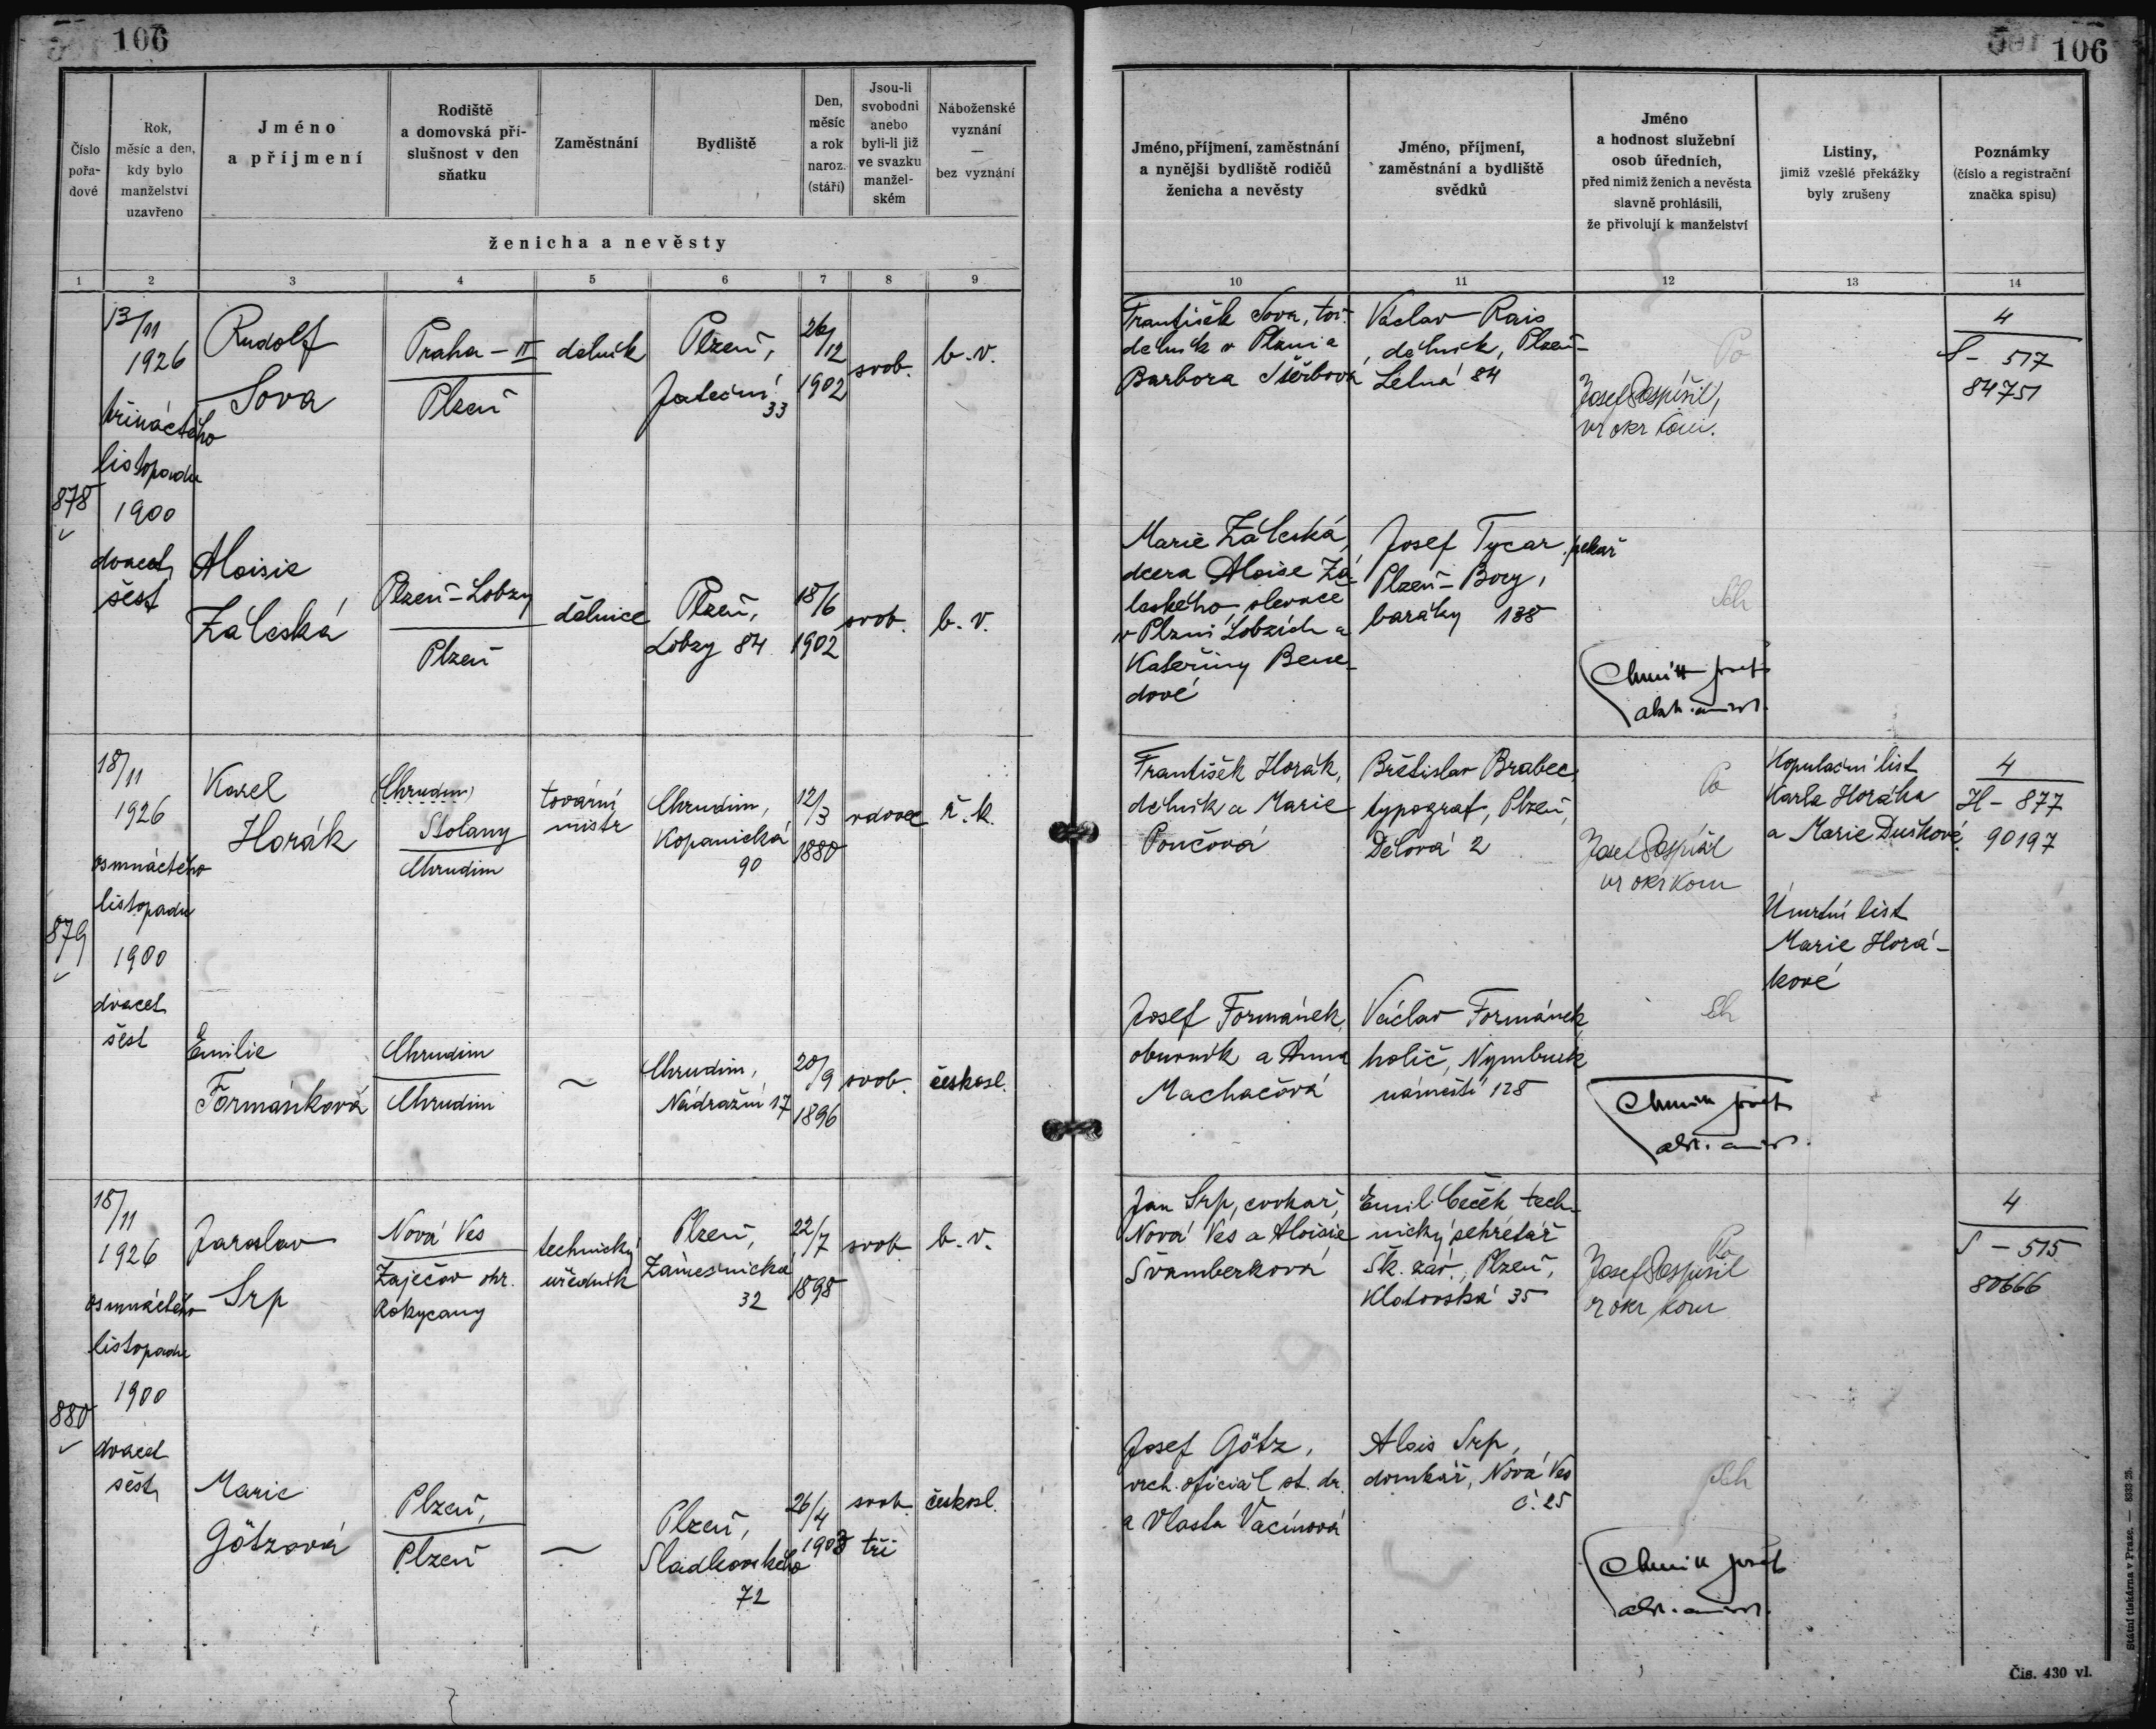 106
Číslo
pořa-
dové
Rok,
měsíc a den,
kdy bylo
manželství
uzavřeno
Jméno
a příjmení
Rodiště
a domovská pří-
slušnost v den
sňatku
Zaměstnání
Bydliště
Den,
měsíc
a rok
naroz.
(stáří)
Jsou-li
svobodni
anebo
byli-li již
ve svazku
manžel-
ském
Náboženské
vyznání
—
bez vyznání
ženicha a nevěsty
1 2 3 4 5 6 7 8 9
878
13/11
1926
třináctého
listopadu
1900
dvacet
šest
Rudolf
Sova
Praha – II
Plzeň
dělník
Plzeň,
Jateční
33
26/12
1902
svob.
b. v.
Aloisie
Záleská
Plzeň – Lobzy
Plzeň
dělnice
Plzeň,
Lobzy 84
18/6
1902
svob.
b. v.
879
18/11
1926
osmnáctého
listopadu
1900
dvacet
šest
Karel
Horák
(Chrudim)
Stolany
Chrudim
tovární
mistr
Chrudim,
Kopanická
90
12/3
1880
vdovec
ř. k.
Emilie
Formánková
Chrudim
Chrudim
~
Chrudim,
Nádražní 17
20/9
1896
svob.
českosl.
880
18/11
1926
osmnáctého
listopadu
1900
dvacet
šest
Jaroslav
Srp
Nová Ves
Zaječov okr.
Rokycany
technický
úředník
Plzeň,
Zámečnická
32
22/7
1898
svob.
b. v.
Marie
Götzová
Plzeň,
Plzeň
~
Plzeň,
Sladkovského
72
26/4
1903
svob.
tři
českosl.
106
Jméno, příjmení, zaměstnání
a nynější bydliště rodičů
ženicha a nevěsty
Jméno, příjmení,
zaměstnání a bydliště
svědků
Jméno
a hodnost služební
osob úředních,
před nimiž ženich a nevěsta
slavně prohlásili,
že přivolují k manželství
Listiny,
jimiž vzešlé překážky
byly zrušeny
Poznámky
(číslo a registrační
značka spisu)
10 11 12 13 14
František Sova, tov.
dělník v Plzni a
Barbora Štěrbová
Václav Rais
, dělník, Plzeň –
Létná 84
Po
Josef Pospíšil,
vr okr kom.
4
S – 517
84751
Marie Záleská,
dcera Aloise Zá-
leského, slevače
v Plzni Lobzích a
Kateřiny Bene-
dové
Josef Tycar, pekař
Plzeň – Bory,
baráky 138
František Horák,
dělník a Marie
Pončová
Břetislav Brabec,
typograf, Plzeň,
Dělová 2
Po
Josef Pospíšil
vr okr kom
Kopulační list
Karla Horáka
a Marie Duškové.
Úmrtní list
Marie Horá-
kové
4
H – 877
90197
Josef Formánek,
obuvník a Anna
Machačová
Václav Formánek
holič, Nymburk
náměstí 128
Jan Srp, cvokař,
Nová Ves a Aloisie
Švamberková
Emil Čeček tech-
nický sekretář
Šk. záv., Plzeň,
Klatovská 35
Po
Josef Pospíšil
vr okr kom
4
S – 515
80666
Josef Götz,
vrch. oficiál st. dr.
a Vlasta Vacínová
Alois Srp,
domkář, Nová Ves
č. 25
Státní tiskárna v Praze. — 8383-25.
Čís. 430 vl.